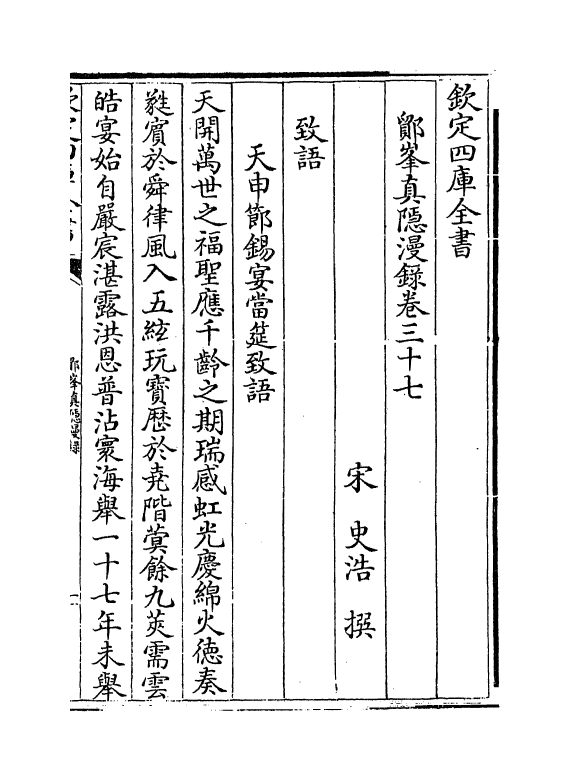 欽定四庫全書
鄮峯真隠漫錄卷三十七
宋 史浩 撰
致語
天申節錫宴當筵致語
天開萬世之福聖應千齡之期瑞感虹光慶綿火徳奏
蕤賓於舜律風入五絃玩寳厯於堯階蓂餘九莢需雲
皓宴始自嚴宸湛露洪恩普沾寰海舉一十七年未舉
鄮峯真隠漫錄